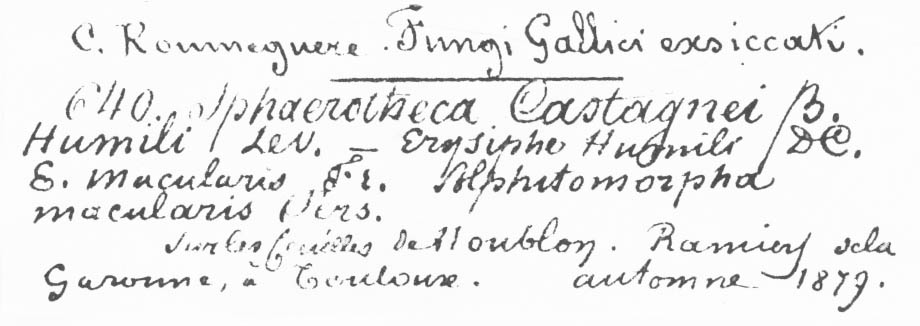 C. Roumeguere. Fungi Gallici exsiccati.
640. Sphaerotheca Castagnei B.
Humili Lev. — Erysiphe Humili DC.
E. macularis Fr. Alphitomorpha
macularis Pers.
Sur les feuilles de Houblon. Ramier de la
Garonne, à Toulouse. automne 1879.